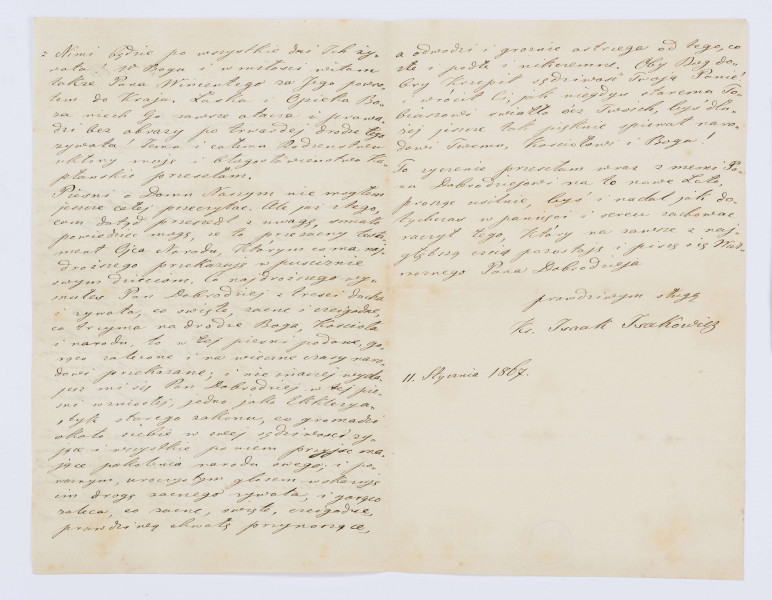 z Nimi będzie po wszystkie dni Ich ży-
wota! W Bogu i w miłości witam
także Pana Wincentego za Jego powro-
tem do Kraju. Łaska i Opieka Bo-
ża niech Go zawsze otacza i prowa-
dzi bez obrazy po twardej drodze tego
żywota! Jemu i całemu Rodzeństwu
ukłony moje i błogosławieństwo Ka-
płańskie przesełam.
Pieśni o Domu Naszym nie mogłem
jeszcze całej przeczytać. Ale już z tego,
com dotąd przeszedł z uwagą, śmiało
powiedzieć mogę, że to przezacny testa-
ment Ojca Narodu, którym co ma naj-
droższego przekazuje w puściznie
swym dzieciom. Co najdroższego wy-
snułeś Pan Dobrodziej z treści ducha
i żywota, co święte, zacne i czcigodne,
co trzyma na drodze Boga, Kościoła
i narodu, to w tej pieśni podane, go-
rąco zalecone i na wieczne czasy naro-
dowi przekazane; i nie inaczej wyda-
jesz mi się Pan Dobrodziej w tej pie-
śni wzniosłej, jedno jako Ekklezya-
styk starego zakonu, co gromadzi
około siebie w swej sędziwości ży-
jące i wszystkie po niem przyjść ma-
jące pokolenia narodu swego, i po-
ważnym, uroczystym głosem wskazuje
im drogę zacnego żywota, i gorąco
zaleca, co zacne, święte, czcigodne,
prawdziwą chwałę przynoszące,
a odwodzi i groźnie ostrzega od tego, co
złe i podłe i nikczemne. Oby Bóg do-
bry krzepił sędziwość Twoją Panie!
i wrócił Ci, jak niegdyś staremu To-
biaszowi światło ócz Twoich, byś dłu-
żej jeszcze tak pięknie śpiewał naro-
dowi Twemu, Kościołowi i Bogu!
To życzenie przesełam wraz z memi Pa-
nu Dobrodziejowi na to nowe Lato,
proszę usilnie, byś i nadal jak do-
tychczas w pamięci i sercu zachować
raczył tego, który na zawsze z naj-
głębszą czcią pozostaję i piszę się Wiel-
możnego Pana Dobrodzieja
prawdziwym sługą
Ks. Izaak Isakowicz
11. Stycznia 1867.